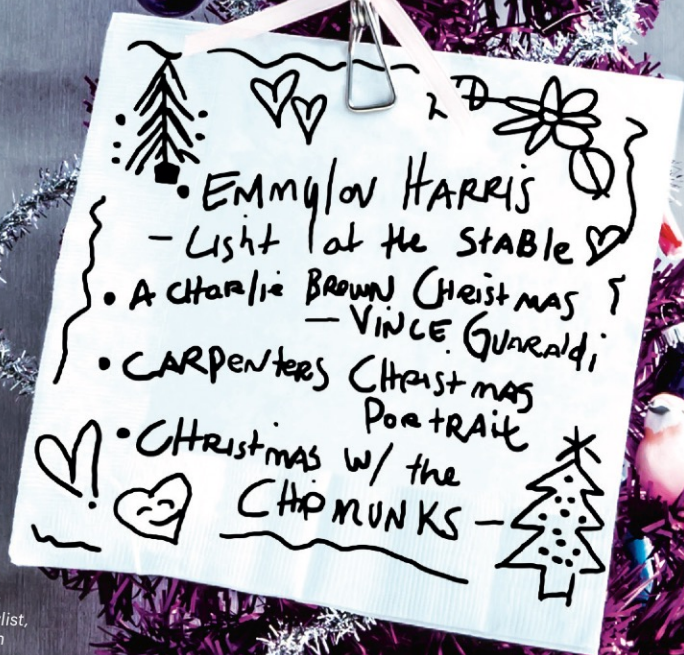 • EMMYLOU HARRIS
– LIGHT at the STABLE
• A CHARLIE BROWN CHRISTMAS
– VINCE GUARALDI
• CARPENTERS CHRISTMAS
PORTRAIT
• CHRISTMAS W/ the
CHIPMUNKS –
list,